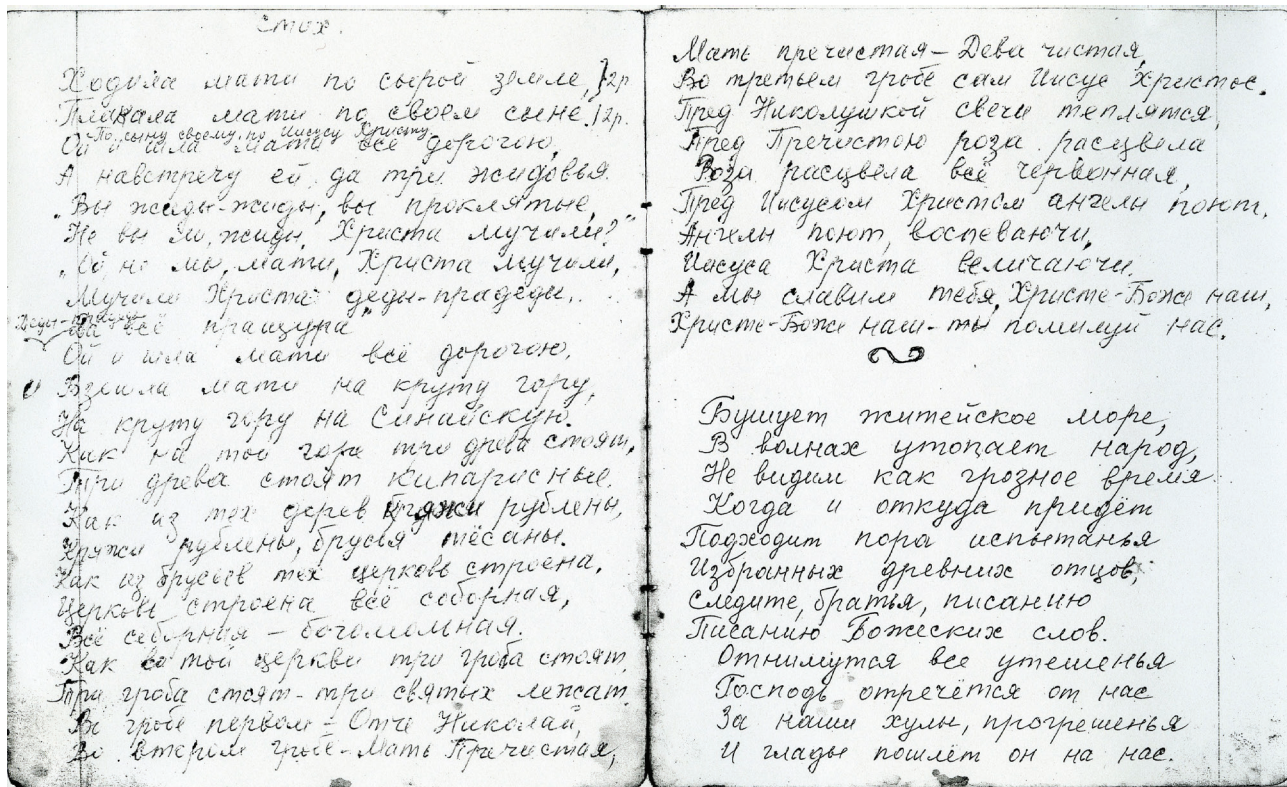 Стих.
Ходила мати по сырой земле, }2р.
Плакала мати по своем сыне. }2р.
По сыну своему, по Иисусу Христу
Ой и шла мати всё дорогою,
А навстречу ей, да три жидовья.
„Вы жиды-жиды, вы проклятые,
Не вы ли, жиды, Христа мучили?"
„Ой не мы, мати, Христа мучили,
Мучили Христа деды-прадеды,
Деды-прадеды
да всё пращура"
Ой и шла мати всё дорогою,
Взошла мати на круту гору,
На круту гору на Синайскую.
Как на той горе три древа стоят,
Три древа стоят кипарисные.
Как из тех дерев кряжи рублены,
Кряжи рублены, брусья тёсаны.
Как из брусьев тех церковь строена,
Церковь строена всё соборная,
Всё соборная – богомольная.
Как во той церкви три гроба стоят,
Три гроба стоят – три святых лежат.
Во гробе первом – Отче Николай,
Во втором гробе – Мать Пречистая,
Мать пречистая – Дева чистая,
Во третьем гробе сам Иисус Христос.
Пред Николушкой свечи теплятся,
Пред Пречистою роза расцвела
Роза расцвела всё червонная,
Пред Иисусом Христом ангелы поют,
Ангелы поют, воспеваючи,
Иисуса Христа величаючи.
А мы славим тебя, Христе-Боже наш,
Христе-Боже наш – ты помилуй нас.
Бушует житейское море,
В волнах утопает народ,
Не видим как грозное время
Когда и откуда придёт
Подходит пора испытанья
Избранных древних отцов,
Следите, братья, писанию
Писанию Божеских слов.
Отнимутся все утешенья
Господь отречётся от нас
За наши хулы, прогрешенья
И глады пошлёт он на нас.